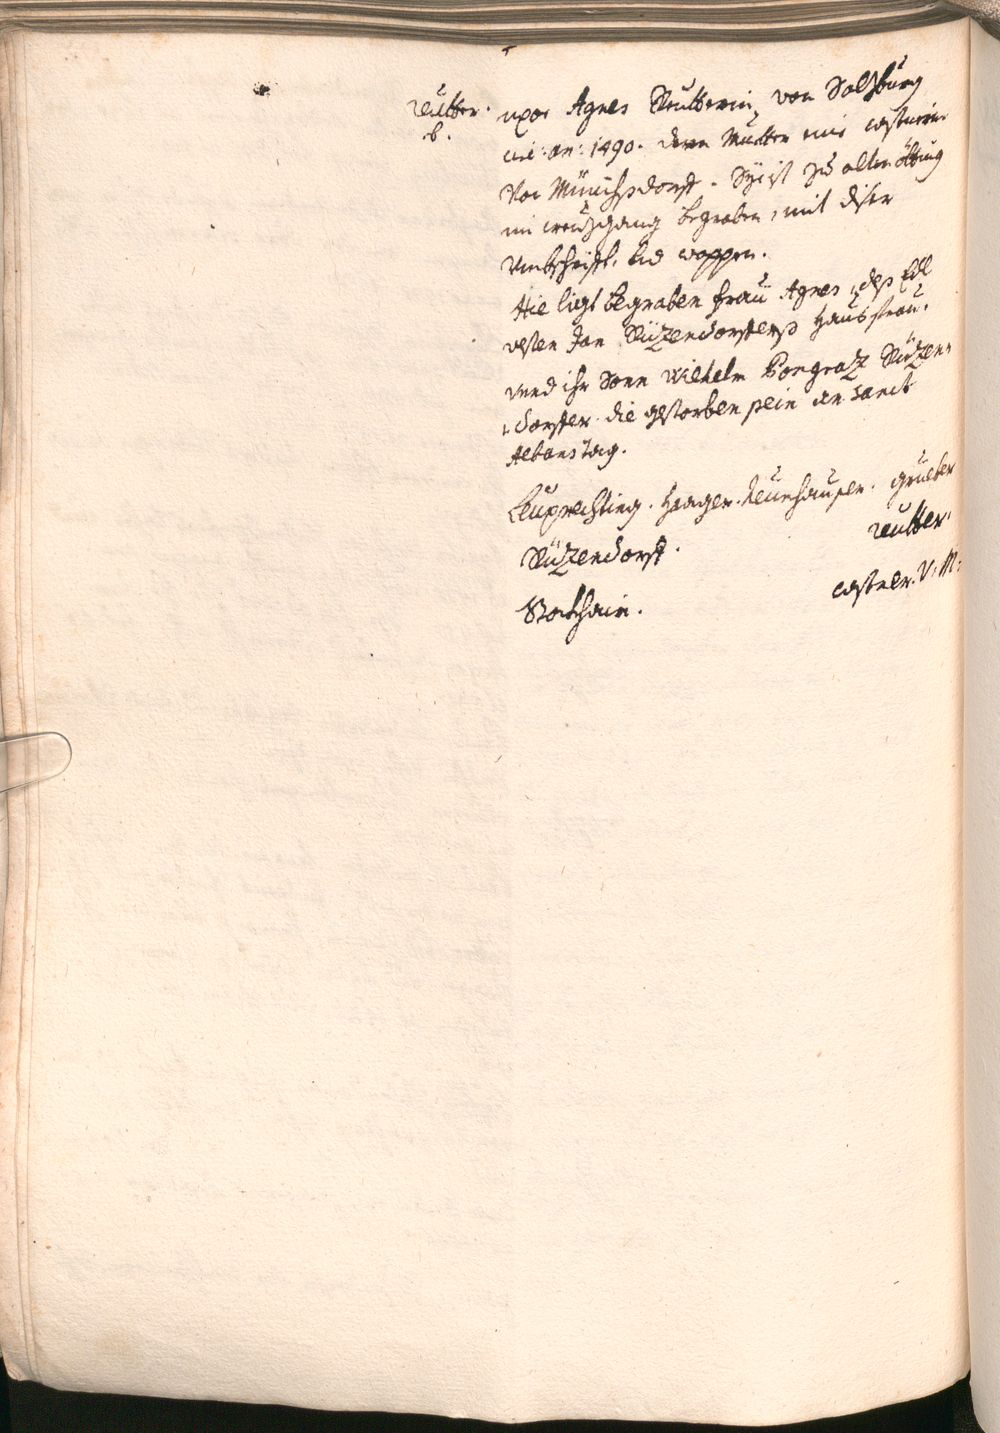 reütter.
b.
uxor Agnes Reütterin, von Salzburg
an: 1490. deren Mutter ein Castnerin
von Münchsdorff. Sÿ ist zu alten ötting
im creützgang begraben, mit diser
umbschrifft, und wappen.
Hie ligt begraben fraü Agnes, deß Edl
vesten Jan Rützendorffers Haüsfrau.
vnnd ihr Sonn Wilhelm Pongratz Rützen=
=dorffer. die gestorben sein an Sanct
Albans Tag.
Leüprechting. Haager. Neünhauser. grueber
Rützendorff.
reütter.
Castner. V: M: